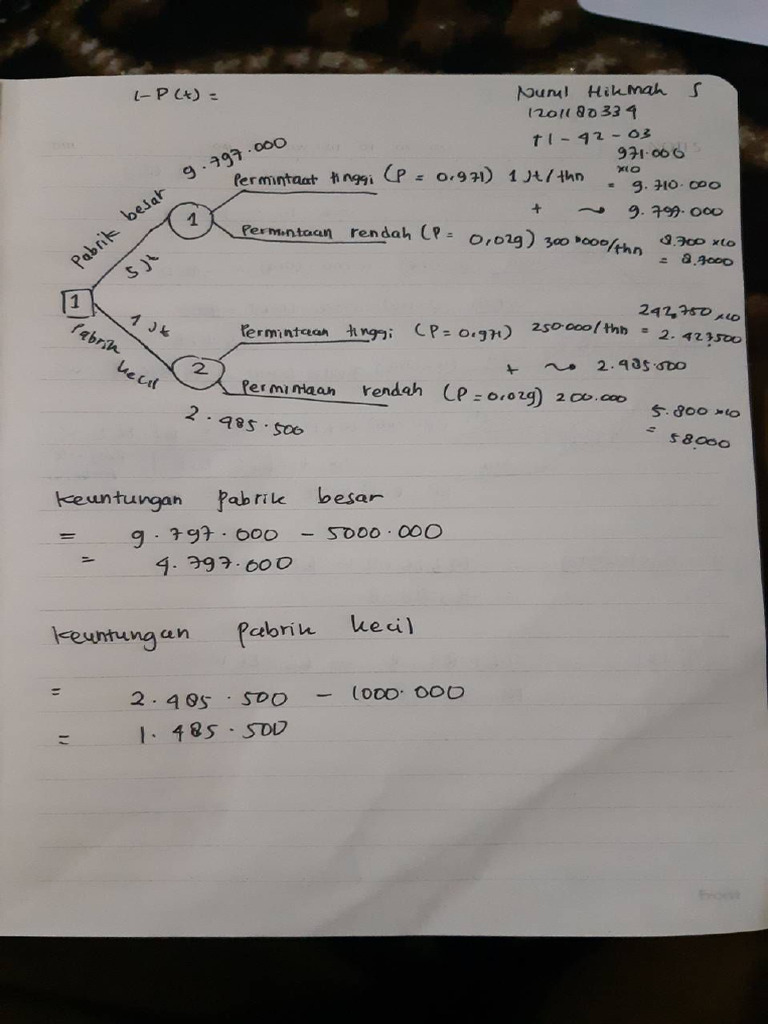 1-P(t) =
Nurul Hikmah S
1201180334
TI-42-03
9.797.000
971.000
x10
Pabrik besar
5 Jt
1
Permintaat tinggi (P = 0,971) 1 Jt/thn
= 9.710.000
+ ~> 9.797.000
Permintaan rendah (P = 0,029) 300.000/thn
8.700 x10
= 8.7000
1
1 Jt
Pabrik kecil
2
242,750 x10
Permintaan tinggi (P = 0,971) 250.000/thn
= 2.427.500
+ ~> 2.485.500
Permintaan rendah (P = 0,029) 200.000
5.800 x10
= 58.000
2.485.500
Keuntungan pabrik besar
= 9.797.000 - 5000.000
= 4.797.000
Keuntungan pabrik kecil
= 2.485.500 - 1000.000
= 1.485.500